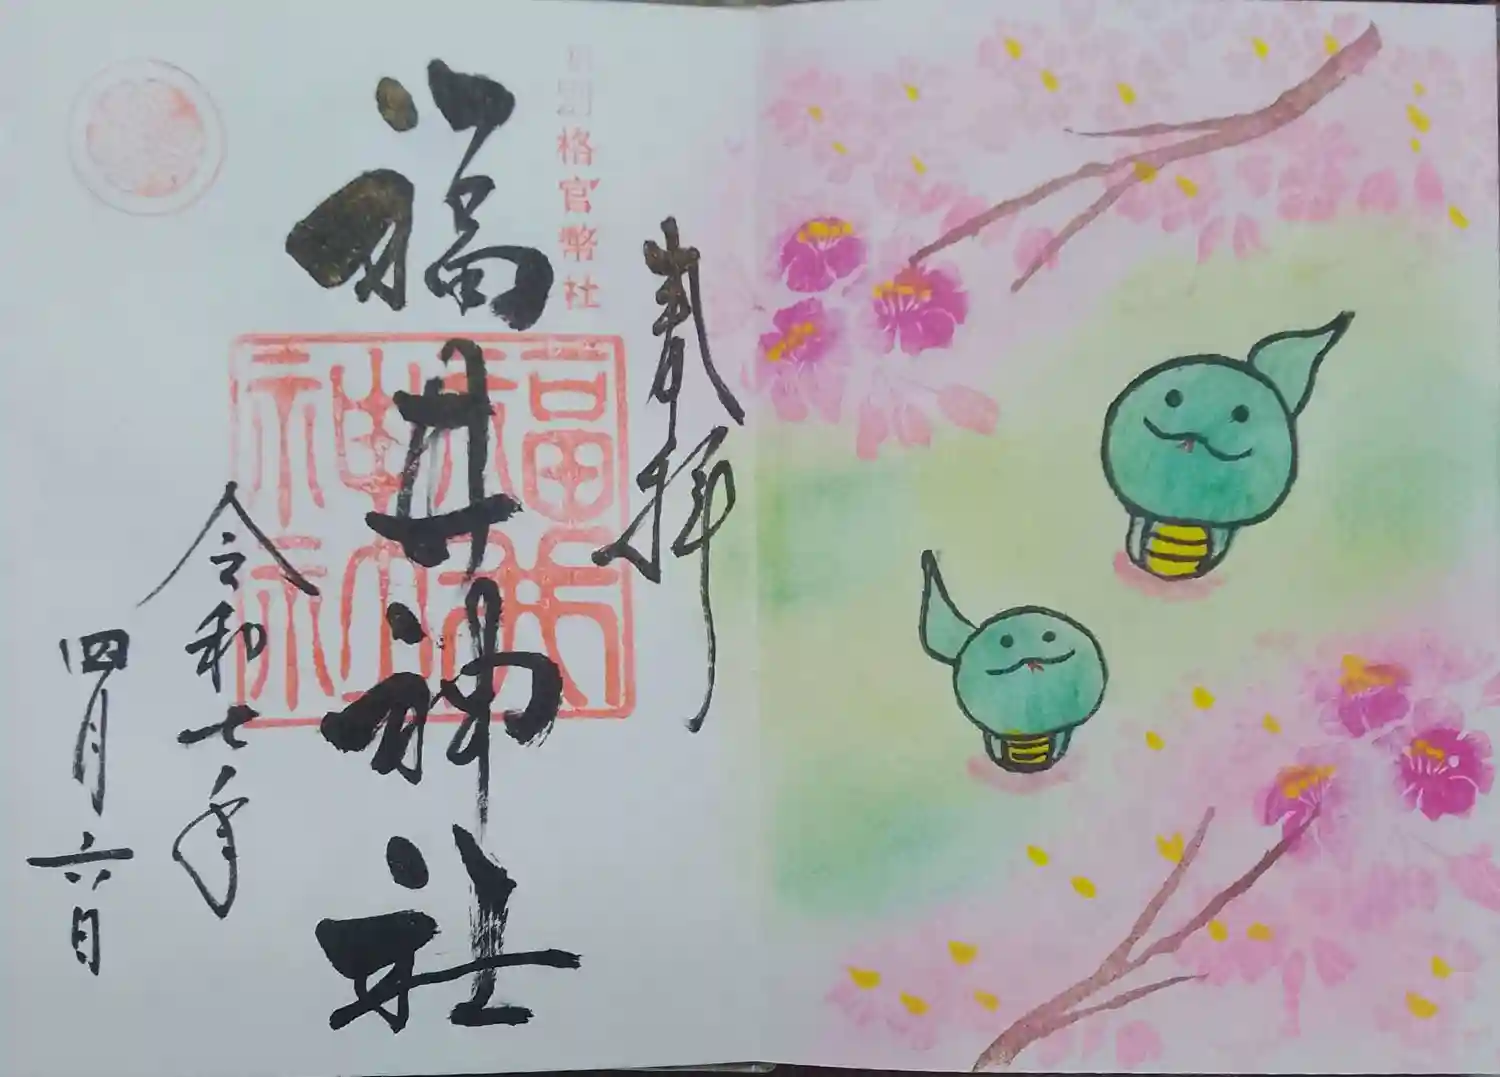 奉拝
別格官幣社
福井神社
福井神社
令和七年
四月六日